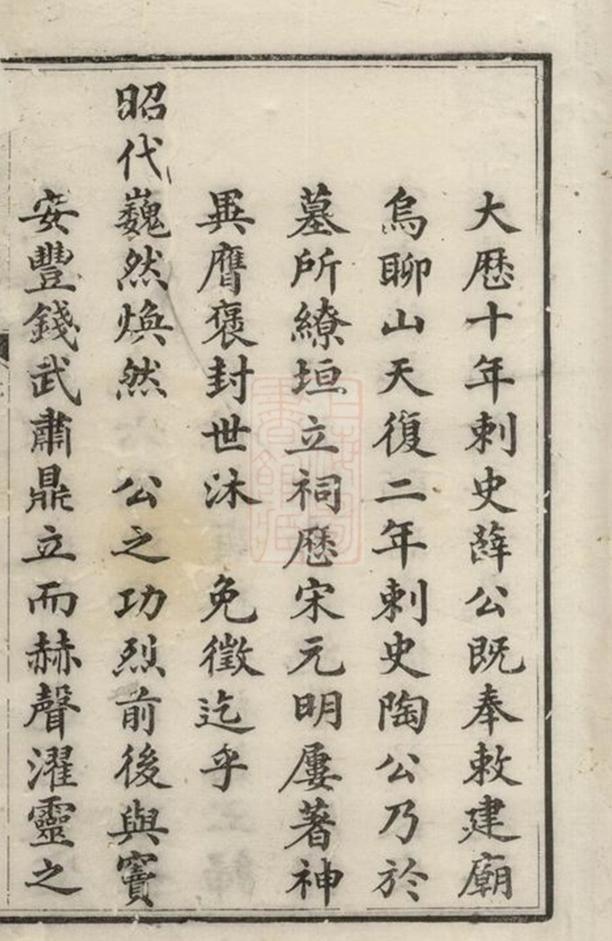 大歷十年刺史薛公既奉敕建廟
烏聊山天復二年刺史陶公乃於
墓所繚垣立祠歷宋元明屢著神
異膺褒封世沐　免徵迄乎
昭代巍然煥然　公之功烈前後與竇
安豐錢武肅鼎立而赫聲濯靈之